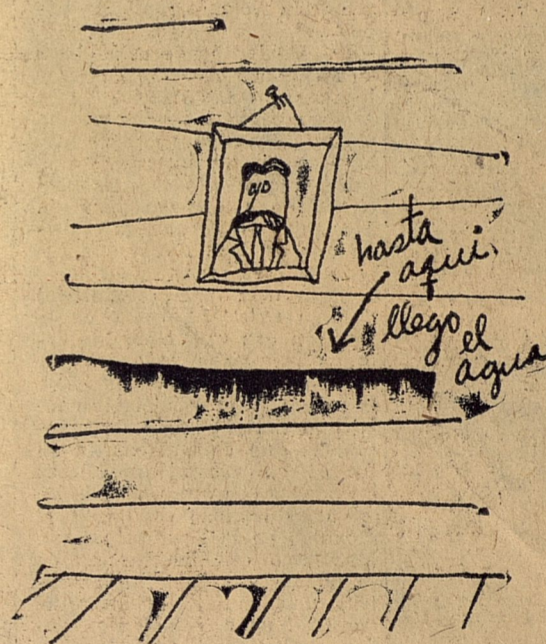 hasta
aqui
llego
el
agua